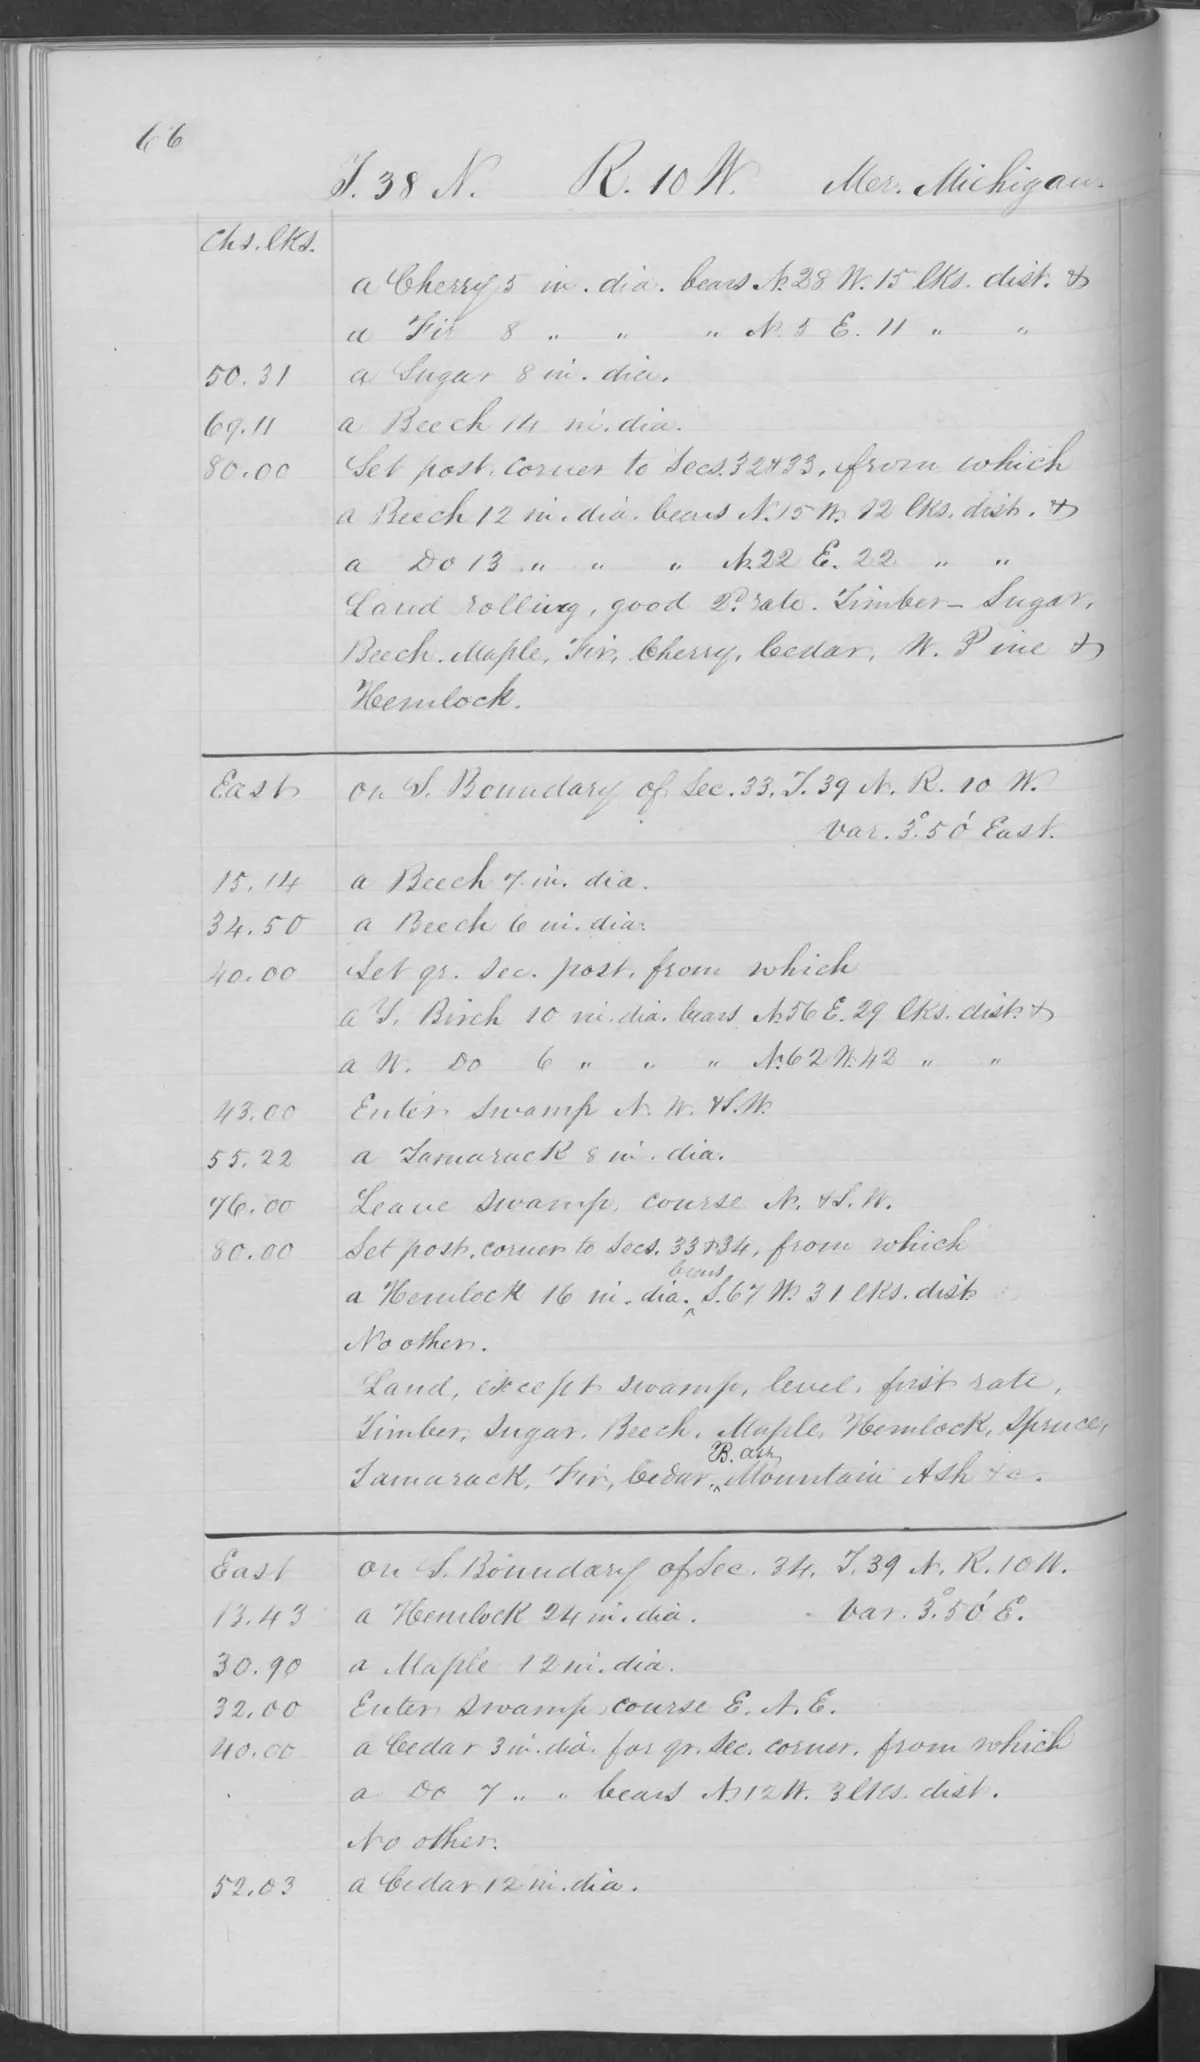 66
T. 38 N. R. 10 W. Mer. Michigan.
Chs. lks.
a Cherry 5 in. dia. bears N. 28 W. 15 lks. dist. &
a Fir 8 " " " N. 5 E. 11 " "
50.31 a Sugar 8 in. dia.
69.11 a Beech 14 in. dia.
80.00 Set post, corner to Secs. 32 & 33, from which
a Beech 12 in. dia. bears N. 15 W. 12 lks. dist. &
a Do 13 " " " N. 22 E. 22 " "
Land rolling, good 2d. rate. Timber - Sugar,
Beech, Maple, Fir, Cherry, Cedar, W. Pine &
Hemlock.
East on S. Boundary of Sec. 33, T. 39 N. R. 10 W.
Var. 3° 50' East.
15.14 a Beech 7 in. dia.
34.50 a Beech 6 in. dia.
40.00 Set qr. Sec. post, from which
a Y. Birch 10 in. dia. bears N. 56 E. 29 lks. dist. &
a W. Do 6 " " " N. 62 W. 42 " "
43.00 Enter Swamp N. W. & S. W.
55.22 a Tamarack 8 in. dia.
76.00 Leave Swamp, course N. & S. W.
80.00 Set post, corner to Secs. 33 & 34, from which
a Hemlock 16 in. dia. ^bears S. 67 W. 31 lks. dist.
No other.
Land, except swamp, level, first rate,
Timber, Sugar, Beech, Maple, Hemlock, Spruce,
Tamarack, Fir, Cedar, ^B. Ash, Mountain Ash &c.
East on S. Boundary of Sec. 34, T. 39 N. R. 10 W.
13.43 a Hemlock 24 in. dia. Var. 3° 50' E.
30.90 a Maple 12 in. dia.
32.00 Enter Swamp, course E. N. E.
40.00 a Cedar 3 in. dia. for qr. Sec. corner, from which
a Do 7 " " bears N. 12 W. 3 lks. dist.
No other.
52.03 a Cedar 12 in. dia.